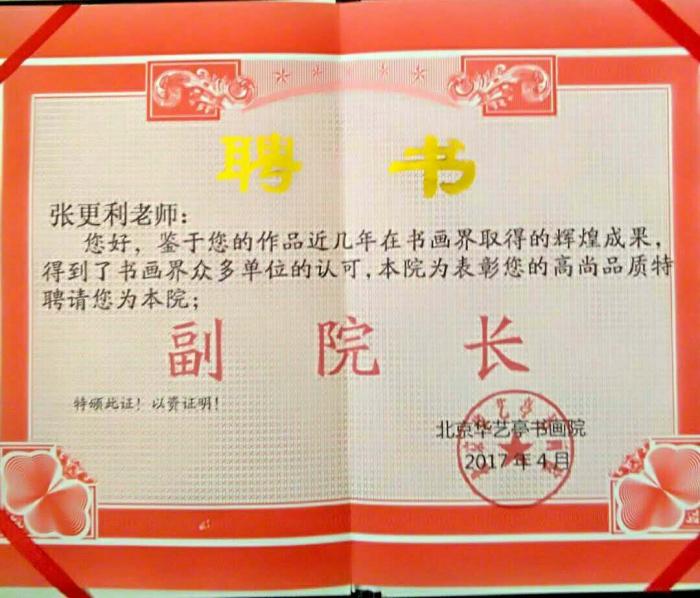 聘书
张更利老师：
您好，鉴于您的作品近几年在书画界取得的辉煌成果，
得到了书画界众多单位的认可，本院为表彰您的高尚品质特
聘请您为本院；
副院长
特颁此证！以资证明！
北京华艺亭书画院
2017年4月